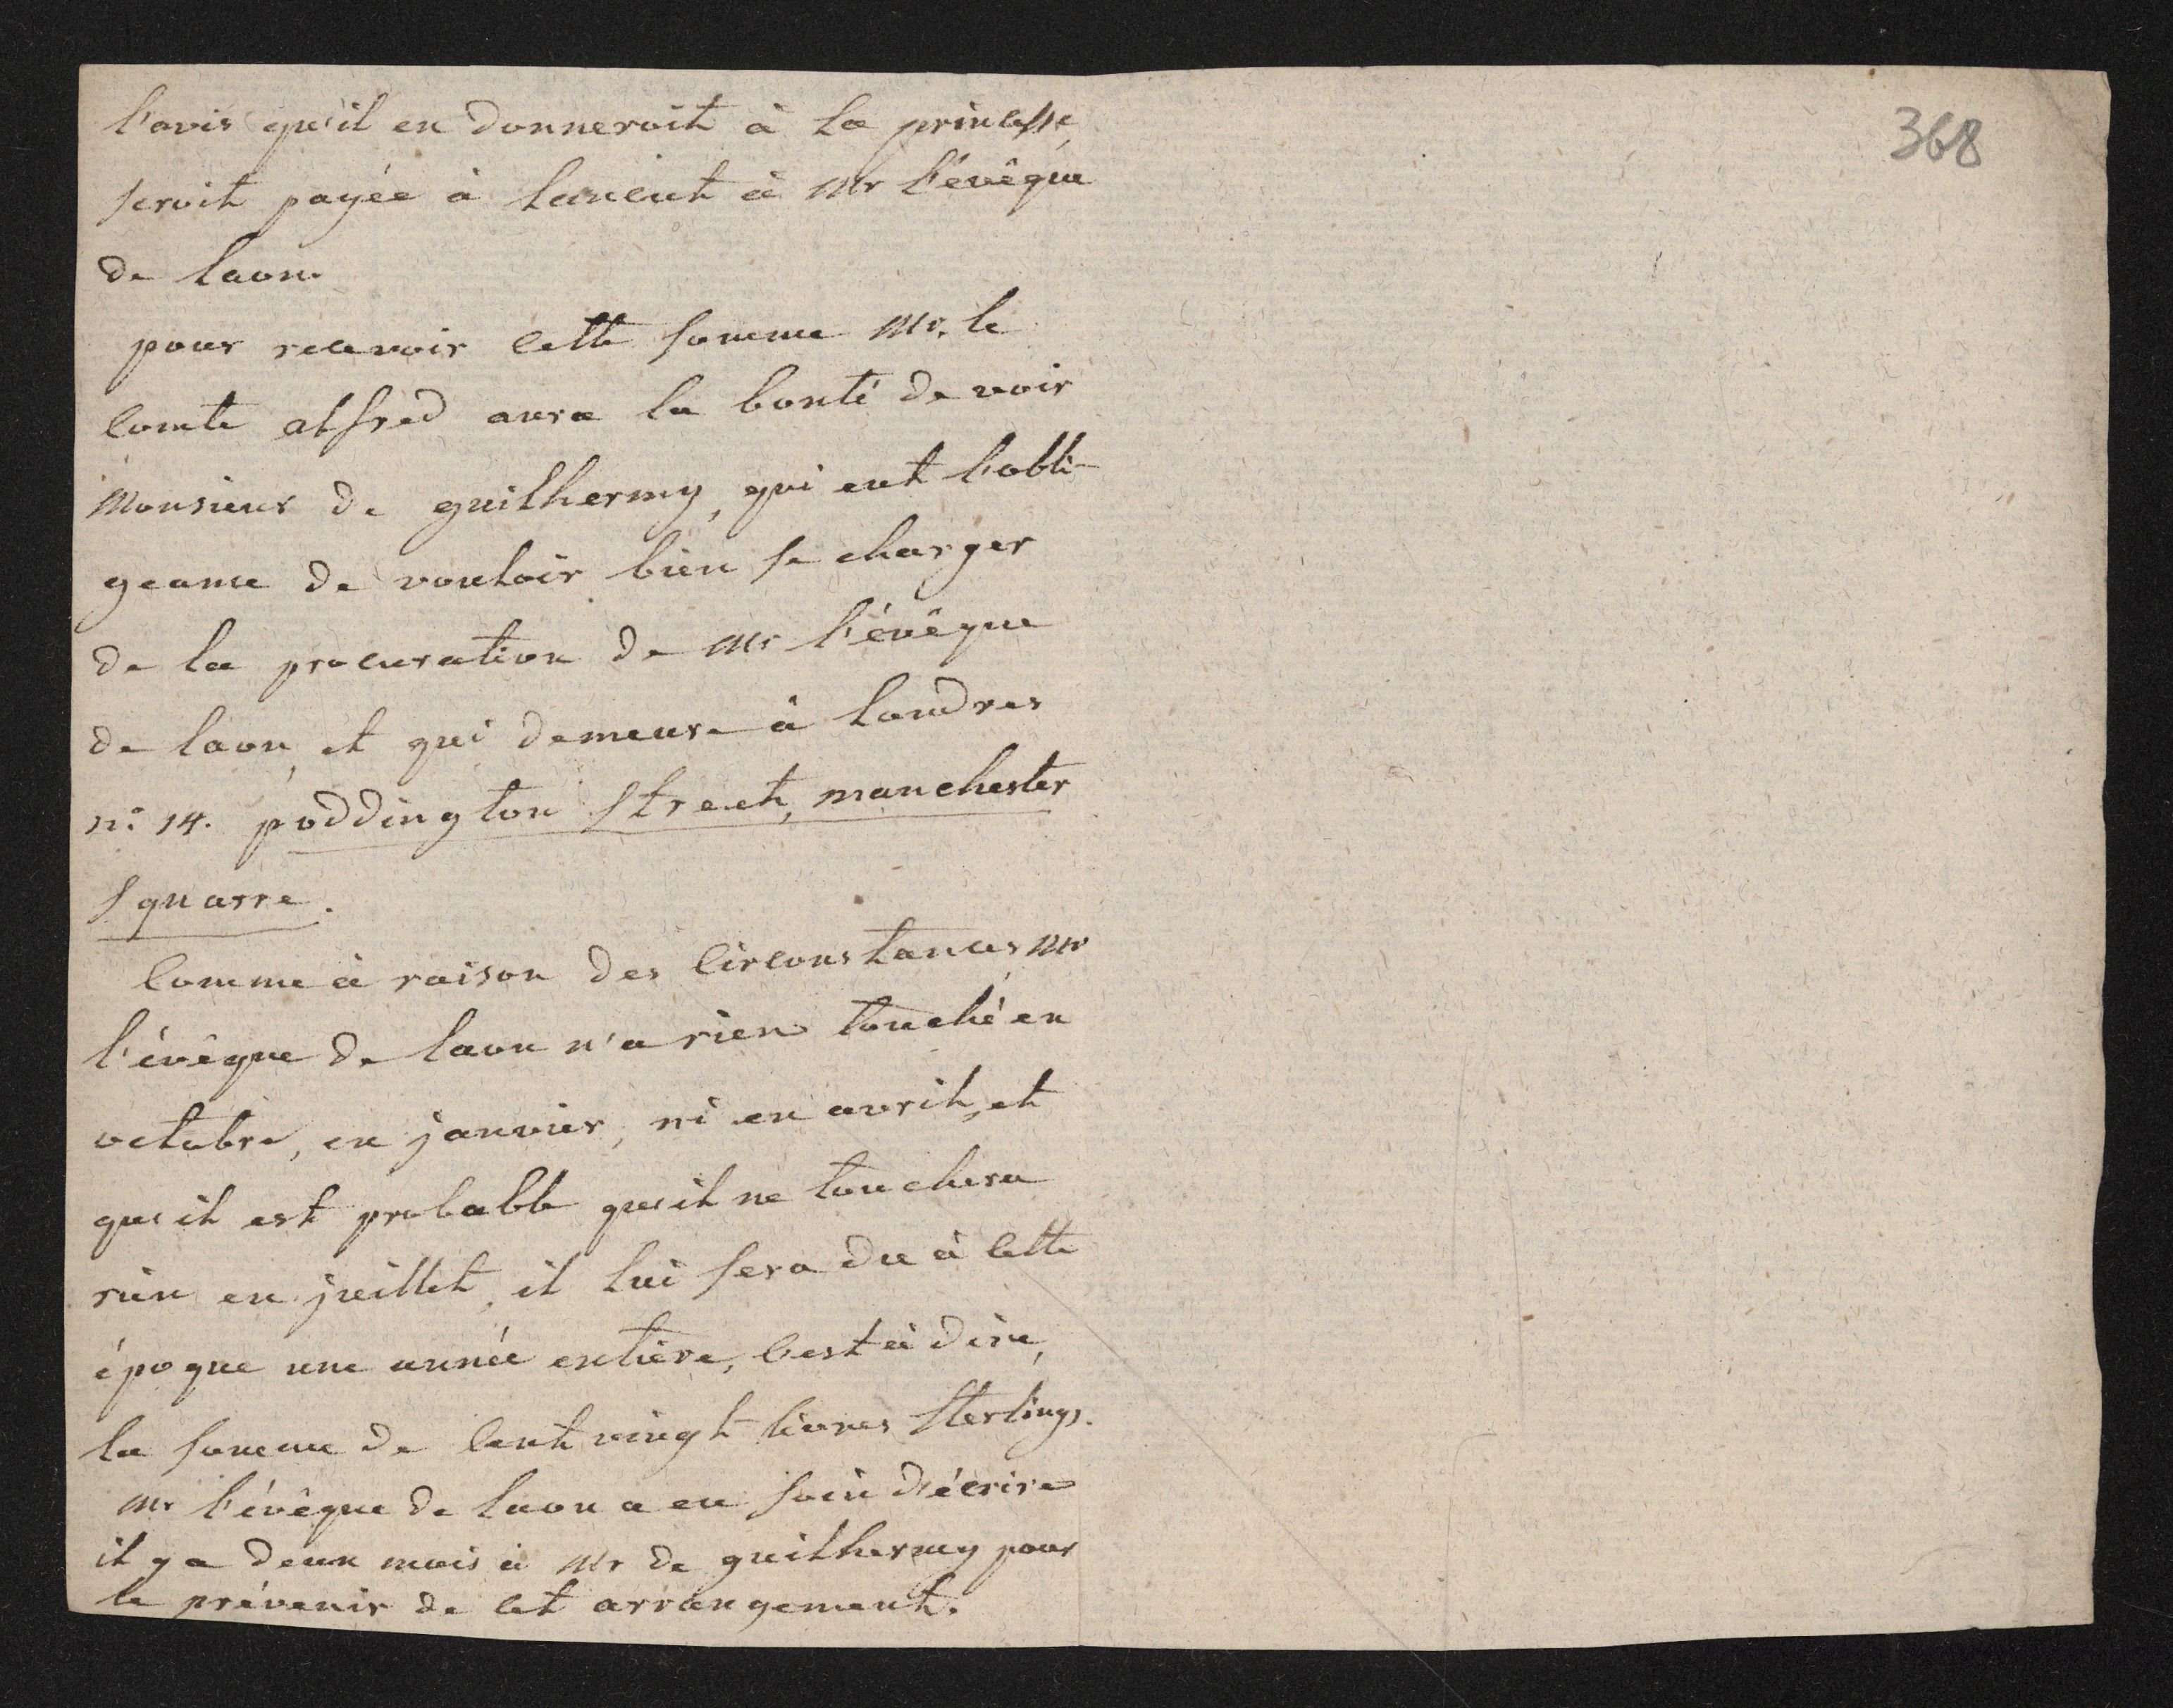 l'avis qu'il en donneroit à la princesse,
seroit payée à lancut à Mr l'évêque
de laon.
pour recevoir cette somme Mr. le
comte alfred aura la bonté de voir
Monsieur de guilhermy, qui eut l'obli-
geance de vouloir bien se charger
de la procuration de Mr l'évêque
de laon, et qui demeure à londres
n.º 14. poddington street, manchester
squarre.
comme à raison des circonstances Mr
l'évêque de laon n'a rien touché en
octobre, en janvier, ni en avril, et
qu'il est probable qu'il ne touchera
rien en juillet, il lui sera du à cette
époque une année entière, c'est à dire,
la somme de cent vingt livres sterlings.
Mr l'évêque de laon a eu soin d'écrire
il y a deux mois à Mr de guilhermy pour
le prévenir de cet arrangement.
368